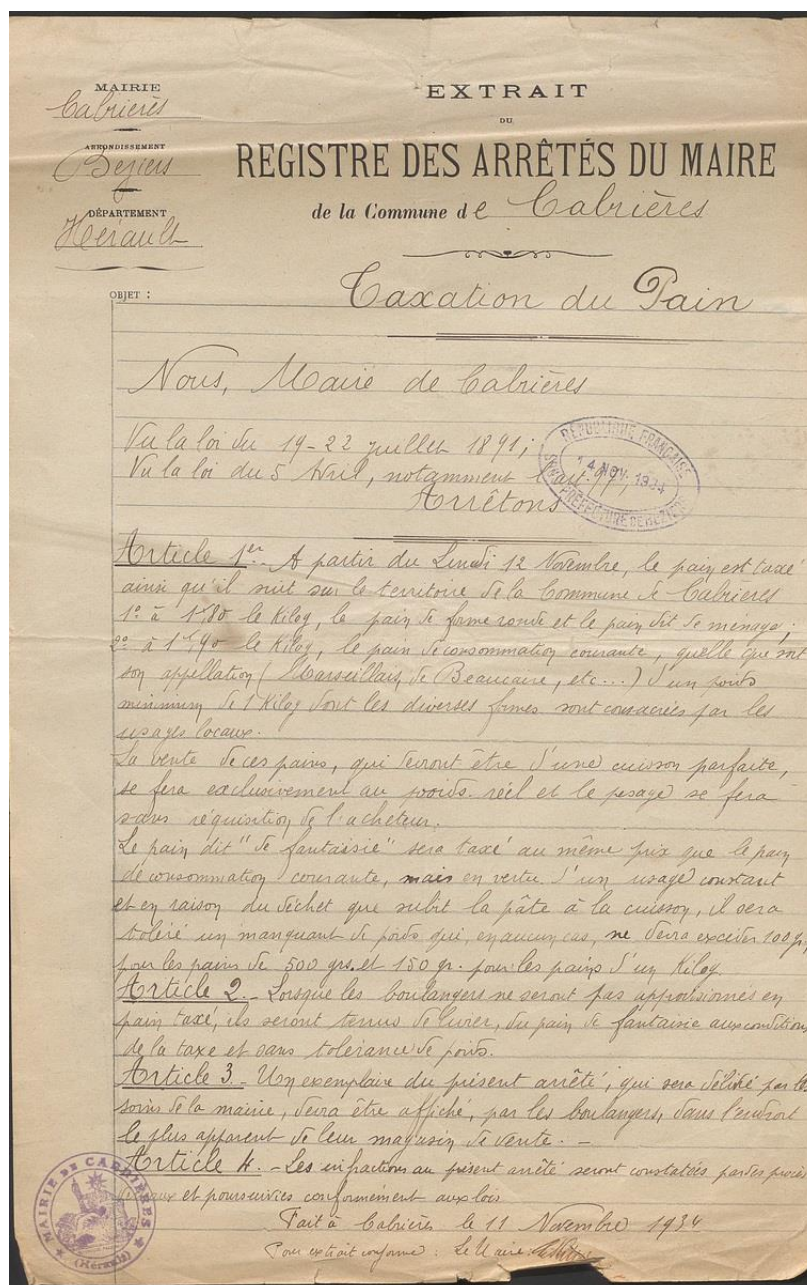 MAIRIE
Cabrières
ARRONDISSEMENT
Béziers
DÉPARTEMENT
Hérault
EXTRAIT
DU
REGISTRE DES ARRÊTÉS DU MAIRE
de la Commune de Cabrières
OBJET :
Taxation du Pain
Nous, Maire de Cabrières
Vu la loi du 19-22 juillet 1891;
Vu la loi du 5 Avril, notamment l'art. 97,
Arrêtons
RÉPUBLIQUE FRANÇAISE
14 NOV. 1934
SOUS-PRÉFECTURE DE BÉZIERS
Article 1er. A partir du Lundi 12 Novembre, le pain est taxé
ainsi qu'il suit sur le territoire de la Commune de Cabrières
1º à 1f80 le Kilog, le pain de forme ronde et le pain dit de ménage;
2º à 1f90 le Kilog, le pain de consommation courante, quelle que soit
son appellation (Marseillais, de Beaucaire, etc...) d'un poids
minimum de 1 Kilog dont les diverses formes sont consacrées par les
usages locaux.
La vente de ces pains, qui devront être d'une cuisson parfaite,
se fera exclusivement au poids réel et le pesage se fera
sans réquisition de l'acheteur.
Le pain dit "de fantaisie" sera taxé au même prix que le pain
de consommation courante, mais en vertu d'un usage constant
et en raison du déchet que subit la pâte à la cuisson, il sera
toléré un manquant de poids qui, en aucun cas, ne devra excéder 100 gr,
pour les pains de 500 grs. et 150 gr. pour les pains d'un Kilog
Article 2.- Lorsque les boulangers ne seront pas approvisionnés en
pain taxé, ils seront tenus de livrer, du pain de fantaisie aux conditions
de la taxe et sans tolérance de poids.
Article 3 - Un exemplaire du présent arrêté, qui sera délivré par les
soins de la mairie, devra être affiché, par les boulangers, dans l'endroit
le plus apparent de leur magasin de vente. -
Article 4. - Les infractions au présent arrêté seront constatées par des procès
verbaux et poursuivies conformément aux lois
Fait à Cabrières le 11 Novembre 1934
Pour extrait conforme : Le Maire
MAIRIE DE CABRIÈRES
(Hérault)